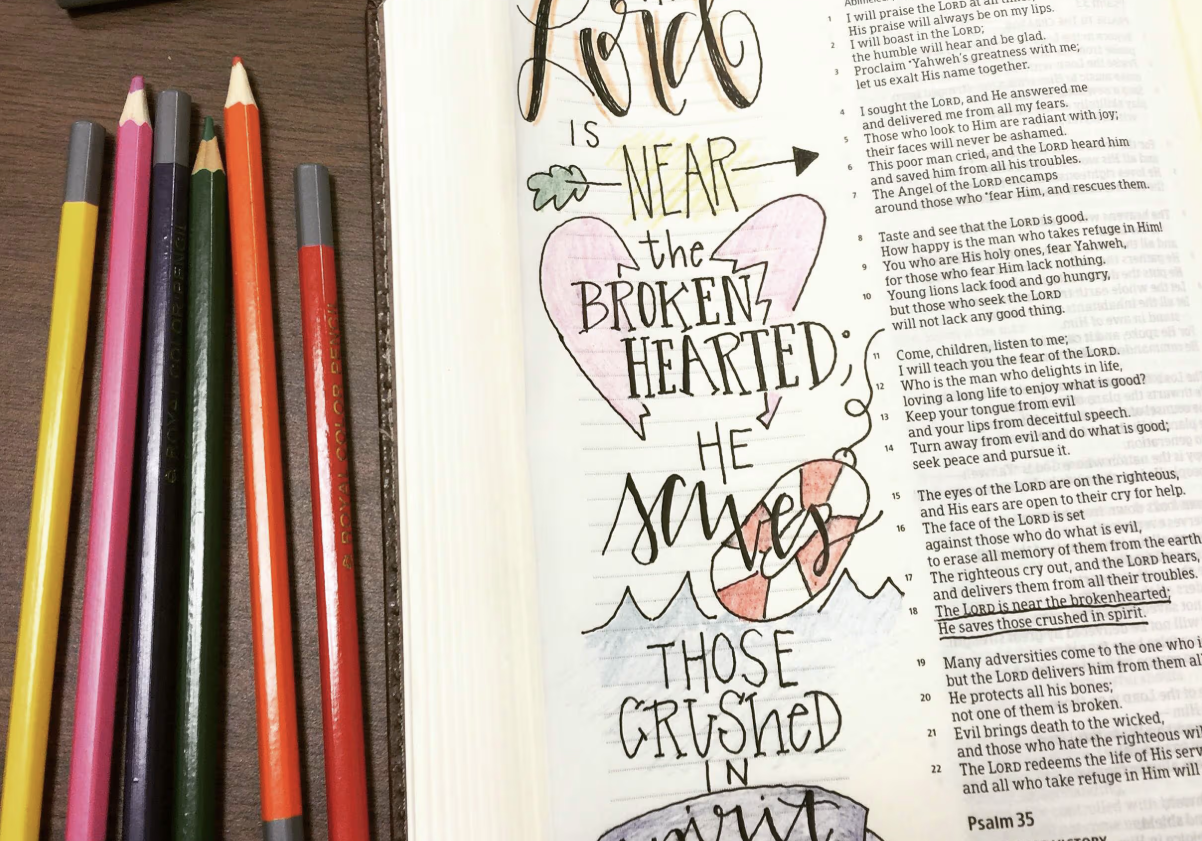 Lord
IS
NEAR
the
BROKEN
HEARTED;
HE
saves
THOSE
CRUSHED
IN
spirit
1 I will praise the LORD at all
His praise will always be on my lips.
2 I will boast in the LORD;
the humble will hear and be glad.
3 Proclaim *Yahweh's greatness with me;
let us exalt His name together.
4 I sought the LORD, and He answered me
and delivered me from all my fears.
5 Those who look to Him are radiant with joy;
their faces will never be ashamed.
6 This poor man cried, and the LORD heard him
and saved him from all his troubles.
7 The Angel of the LORD encamps
around those who *fear Him, and rescues them.
8 Taste and see that the LORD is good.
How happy is the man who takes refuge in Him!
9 You who are His holy ones, fear Yahweh,
for those who fear Him lack nothing.
10 Young lions lack food and go hungry,
but those who seek the LORD
will not lack any good thing.
11 Come, children, listen to me;
I will teach you the fear of the LORD.
12 Who is the man who delights in life,
loving a long life to enjoy what is good?
13 Keep your tongue from evil
and your lips from deceitful speech.
14 Turn away from evil and do what is good;
seek peace and pursue it.
15 The eyes of the LORD are on the righteous,
and His ears are open to their cry for help.
16 The face of the LORD is set
against those who do what is evil,
to erase all memory of them from the earth
17 The righteous cry out, and the LORD hears,
and delivers them from all their troubles.
18 The LORD is near the brokenhearted;
He saves those crushed in spirit.
19 Many adversities come to the one who i
but the LORD delivers him from them al
20 He protects all his bones;
not one of them is broken.
21 Evil brings death to the wicked,
and those who hate the righteous wil
22 The LORD redeems the life of His serv
and all who take refuge in Him will
Psalm 35
ROYAL COLOR PENCIL
ROYAL COLOR PENCIL